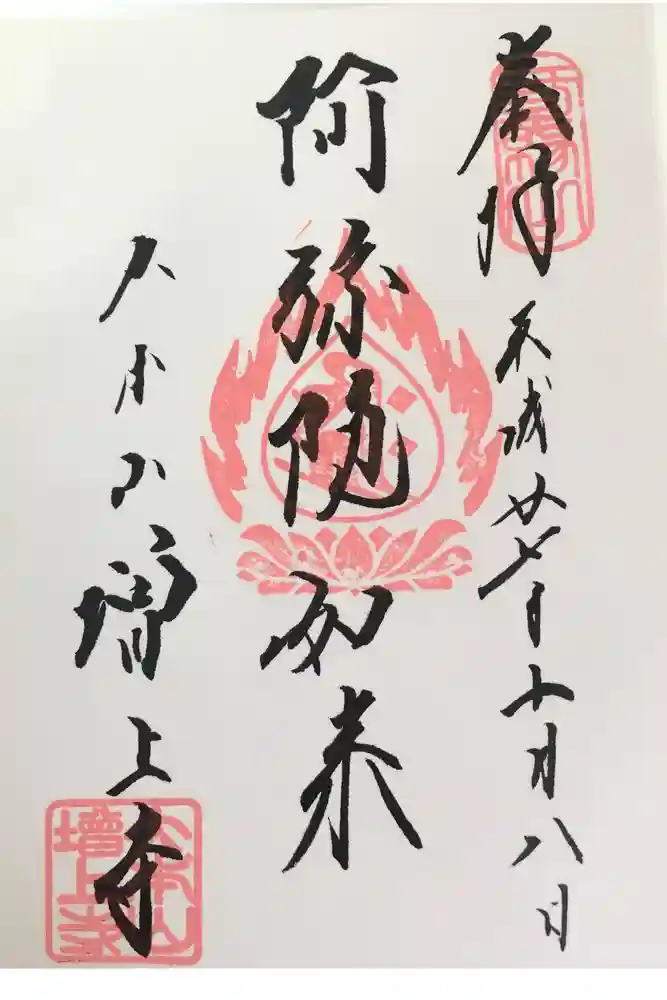 奉拝
平成廿七年十月八日
阿弥陀如来
大本山増上寺
大本山
增上寺